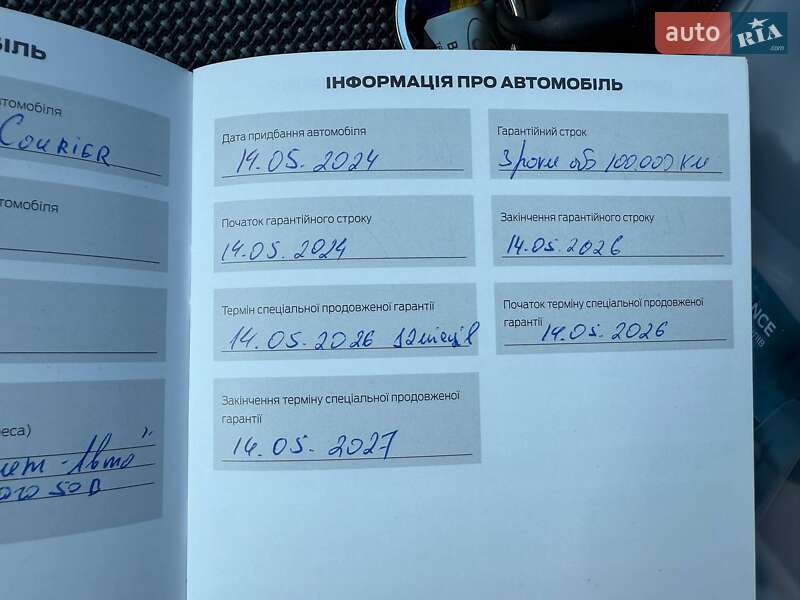 БІЛЬ
автомобіля
COURIER
томобіля
еса)
Авто
50 В
ІНФОРМАЦІЯ ПРО АВТОМОБІЛЬ
Дата придбання автомобіля
14.05.2024
Гарантійний строк
3 роки або 100.000 км
Початок гарантійного строку
14.05.2024
Закінчення гарантійного строку
14.05.2026
Термін спеціальної продовженої гарантії
14.05.2026 12 місяців
Початок терміну спеціальної продовженої
гарантії
14.05.2026
Закінчення терміну спеціальної продовженої
гарантії
14.05.2027
auto RIA
.com